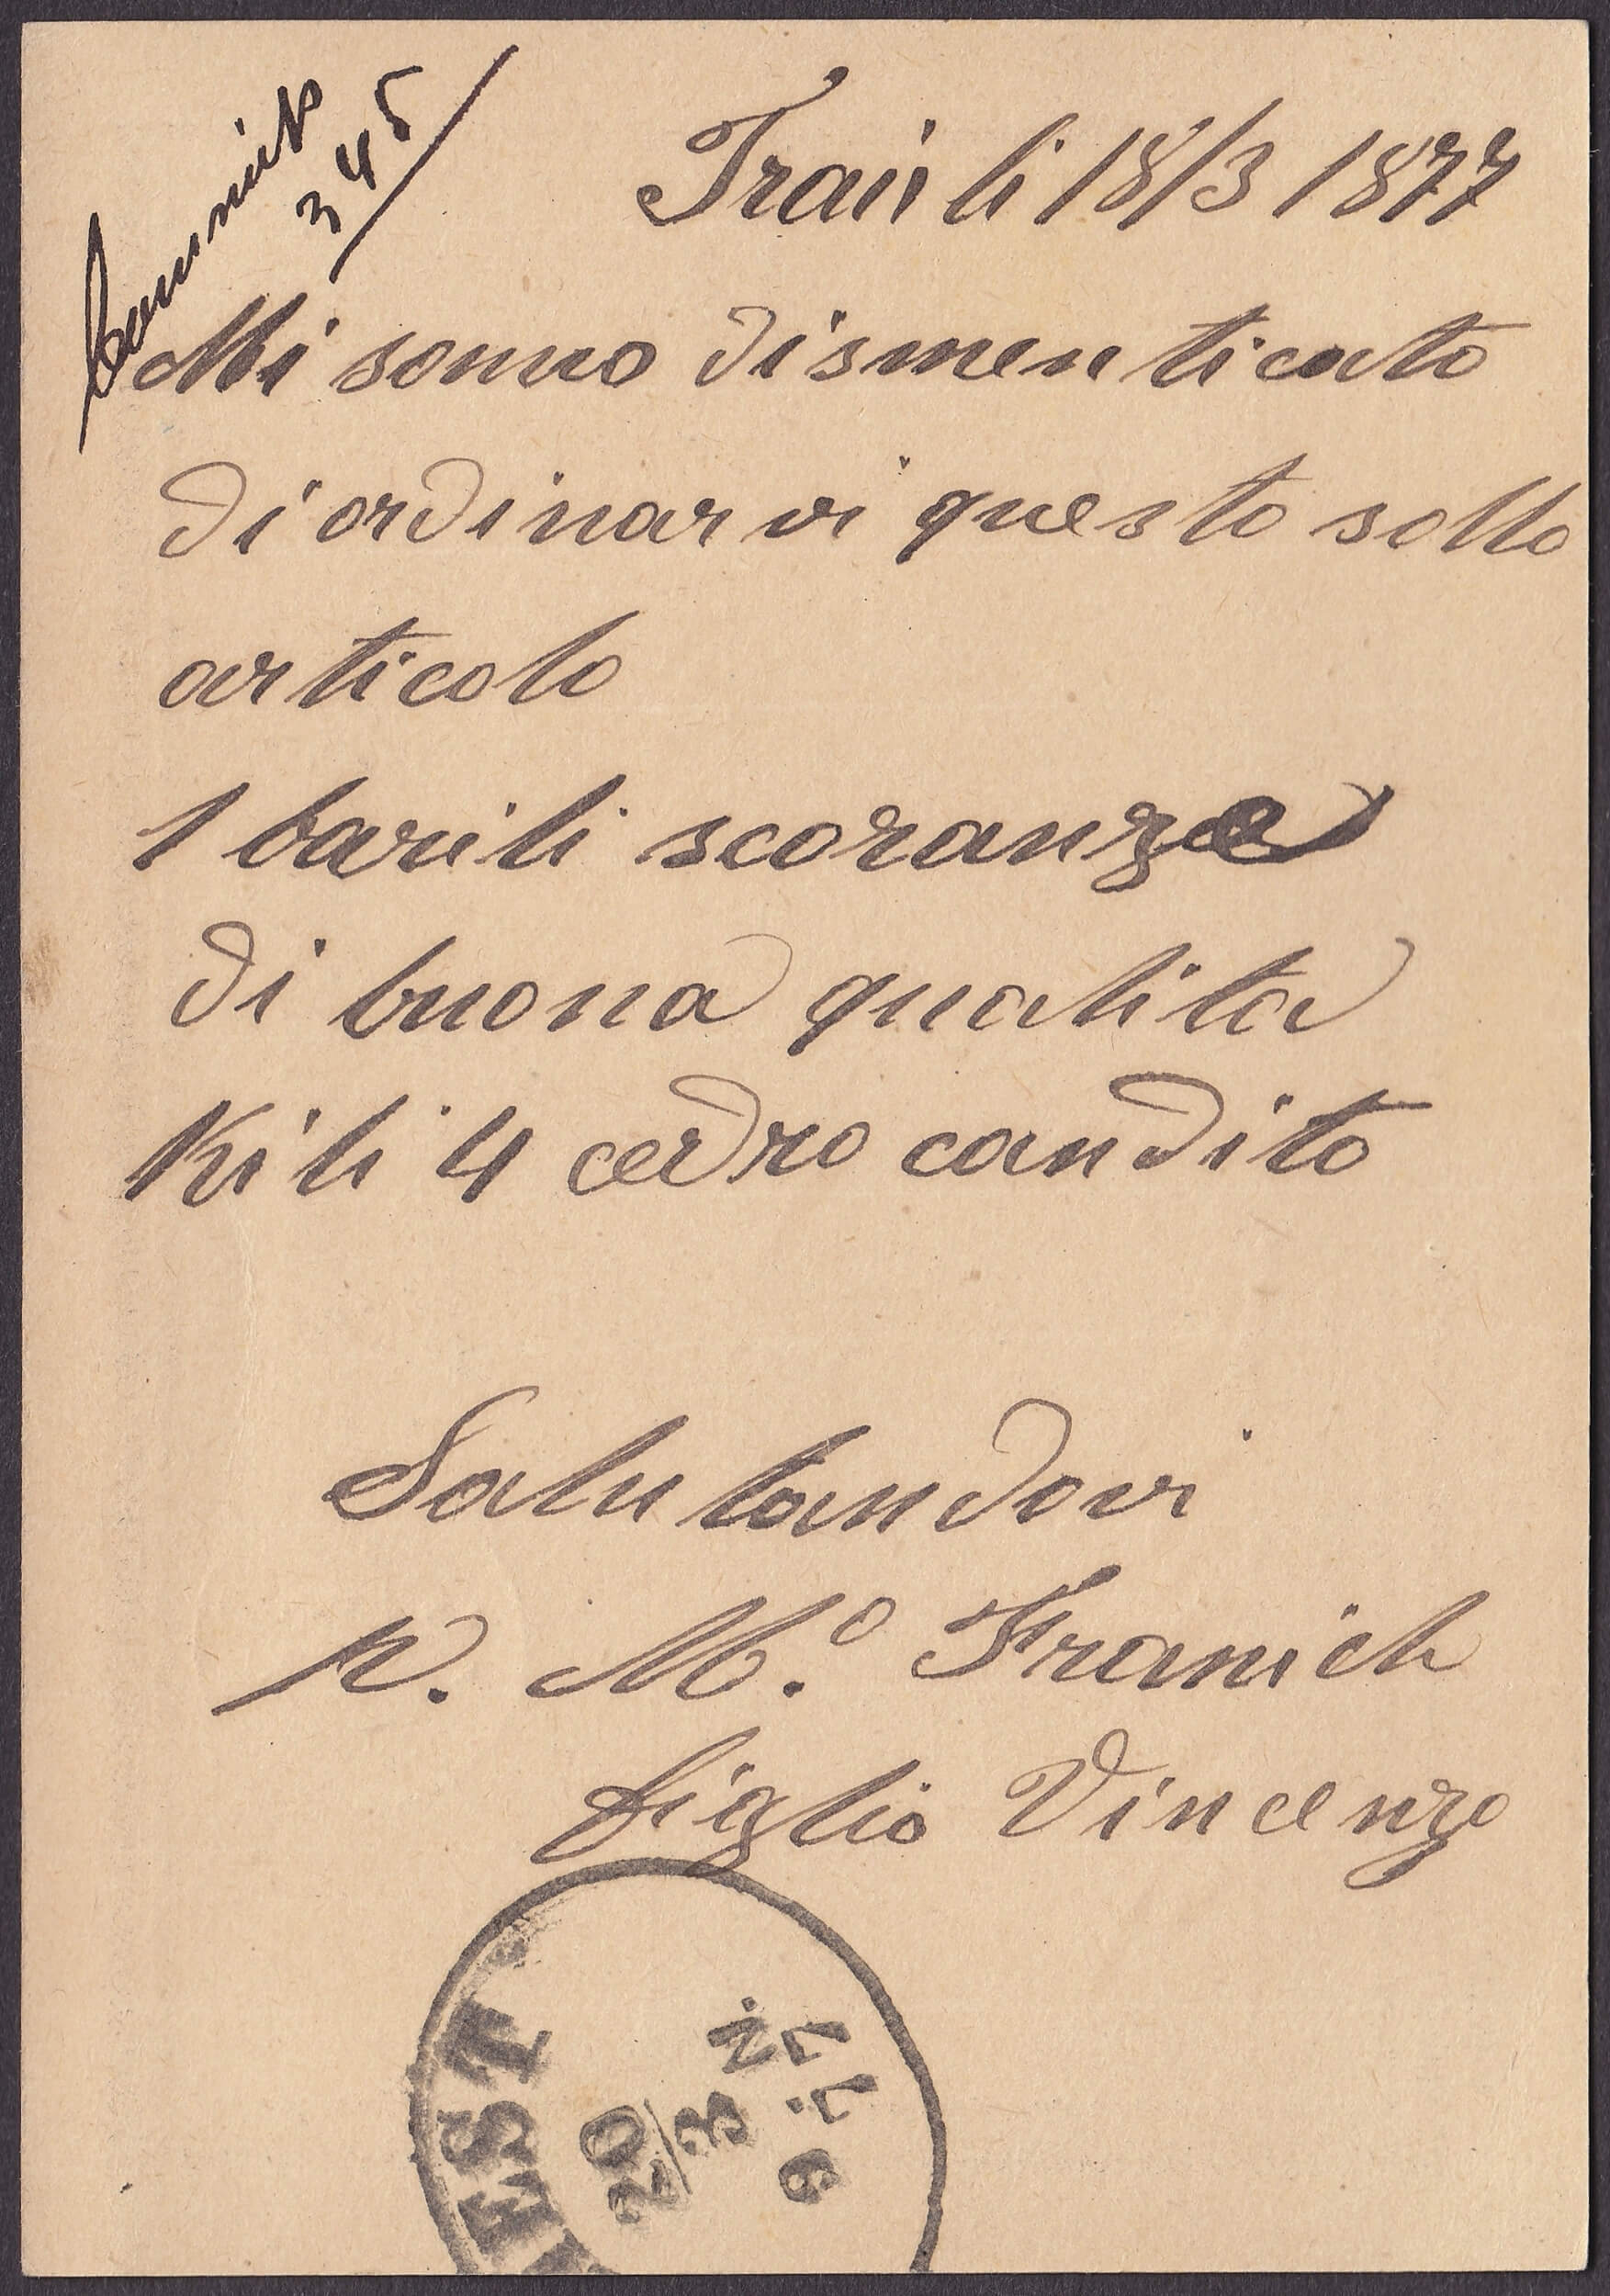 345
Traù li 18/3 1877
Mi sonno dismenticato
di ordinarvi questo sotto
articolo
1 barili scoranze
di buona qualita
Kili 4 cedro candito
Salutandovi
p. M.o Franich
figlio Vincenzo
EST
20/3
N.
77